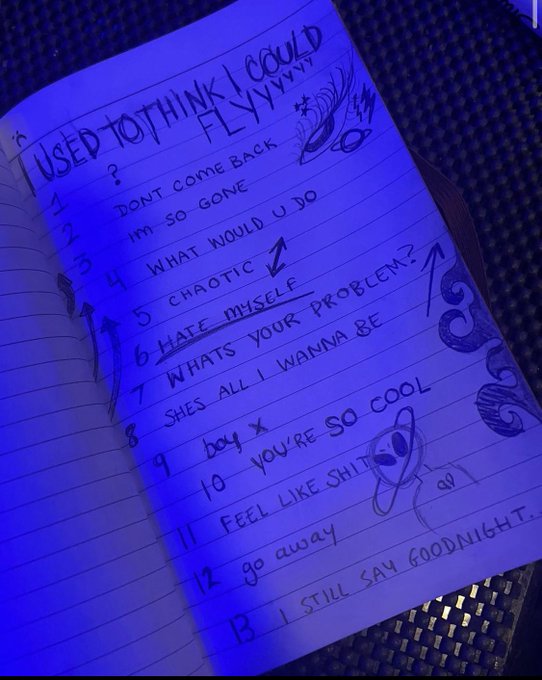 I USED TO THINK I COULD
FLYYYYYY
1 ?
2 DONT COME BACK
3 IM SO GONE
4 WHAT WOULD U DO
5 CHAOTIC
6 HATE MYSELF
7 WHATS YOUR PROBLEM?
8 SHES ALL I WANNA BE
9 boy x
10 YOU'RE SO COOL
11 FEEL LIKE SHIT
12 go away
13 I STILL SAY GOODNIGHT..